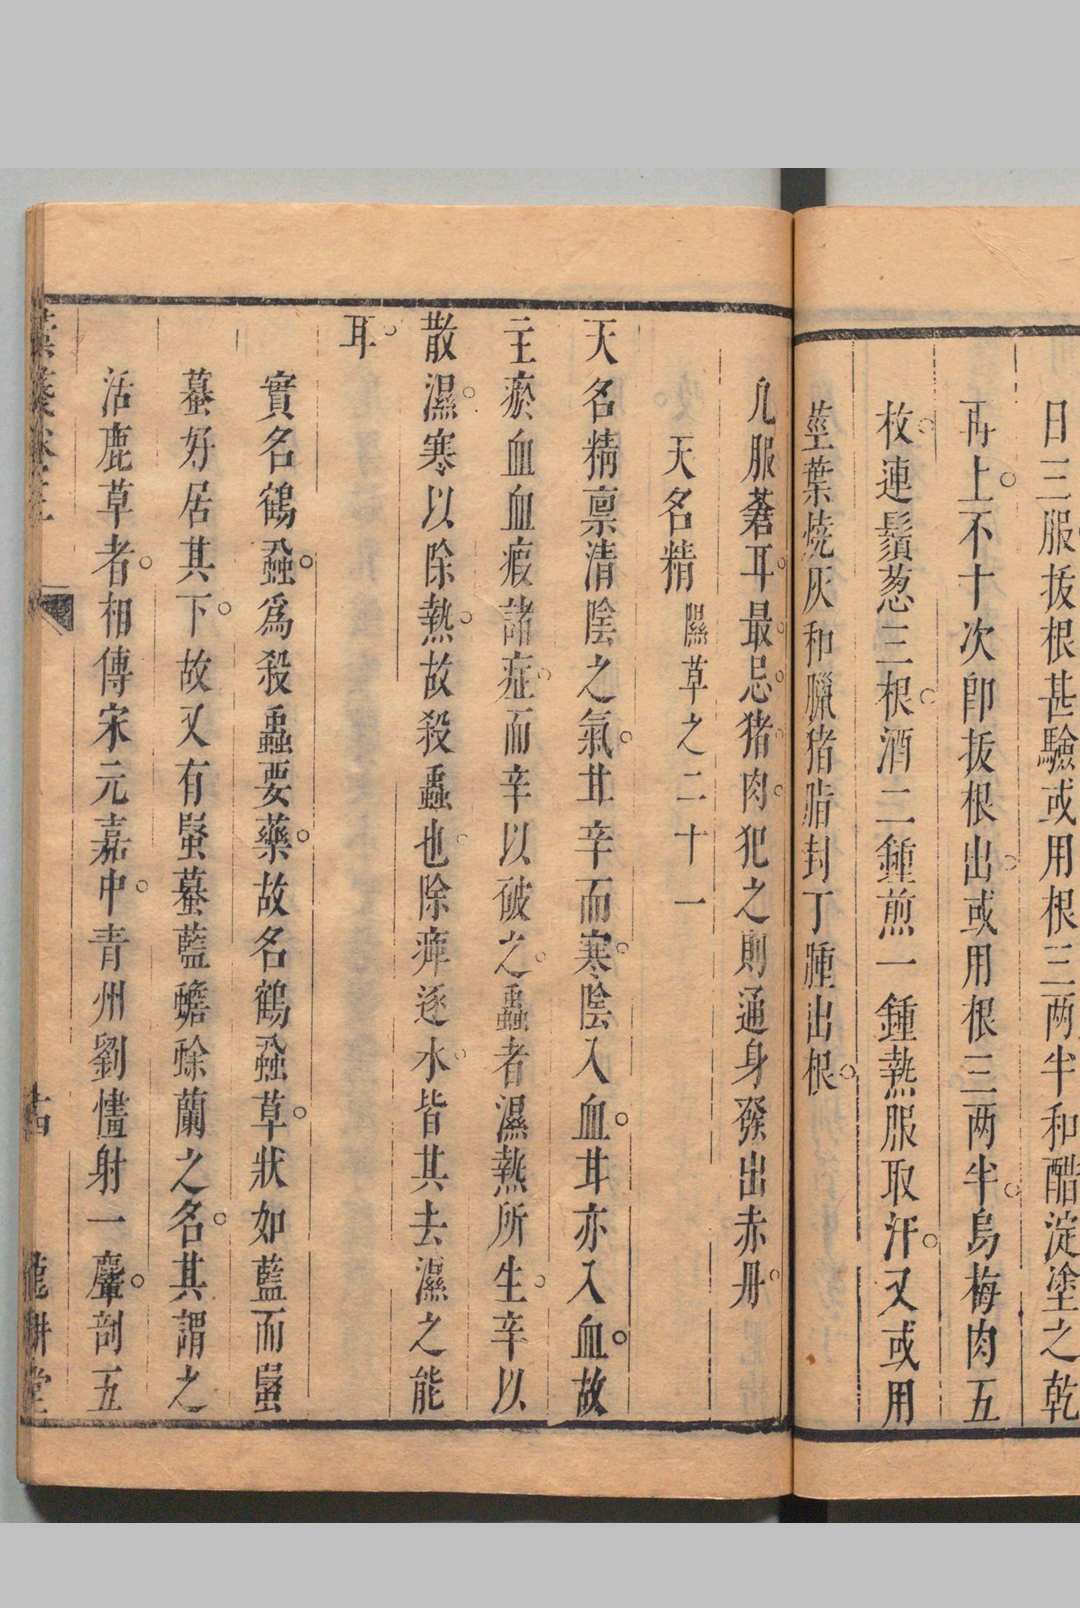 日三服拔根甚驗或用根三两半和醋淀塗之乾
再上。不十次卽拔根出。或用根三两半。烏梅肉五
枚。連鬚葱三根。酒二鍾煎一鍾熱服取汗。又或用
莖葉燒灰和臘猪脂封丁腫出根。
凡服蒼耳。最。忌。猪。肉。犯之則通身發出赤丹。
天名精 隰草之二十一
天名精稟清陰之氣。甘辛而寒。陰入血。甘亦入血。故
主瘀血血瘕諸症。而辛以破之。蟲者濕熱所生。辛以
散濕。寒以除熱。故殺蟲也。除痺逐水。皆其去濕之能
耳。
實名鶴蝨。爲殺蟲要藥。故名鶴蝨草。狀如藍而蝦
蟇好居其下。故又有蝦蟇藍蟾蜍蘭之名。其謂之
活鹿草者。相傳宋元嘉中。青州劉㦎射一麞。剖五
龍耕堂